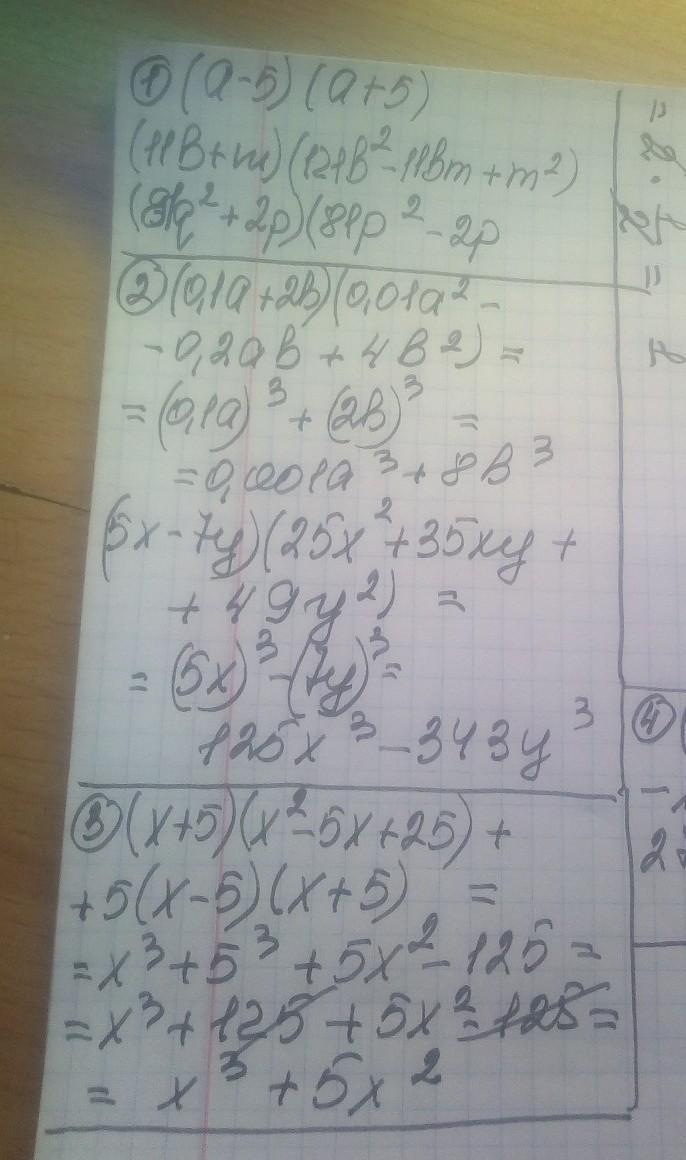 ① (a-5)(a+5)
(11b+m)(121b²-11bm+m²)
(q²+2p)(81p²-2p
② (0,1a+2b)(0,01a²-
-0,2ab+4b²)=
=(0,1a)³+(2b)³=
=0,001a³+8b³
(5x-7y)(25x²+35xy+
+49y²)=
=(5x)³-(7y)³=
125x³-343y³
③ (x+5)(x²-5x+25)+
+5(x-5)(x+5) =
=x³+5³+5x²-125=
=x³+125+5x²-125=
= x³+5x²
④